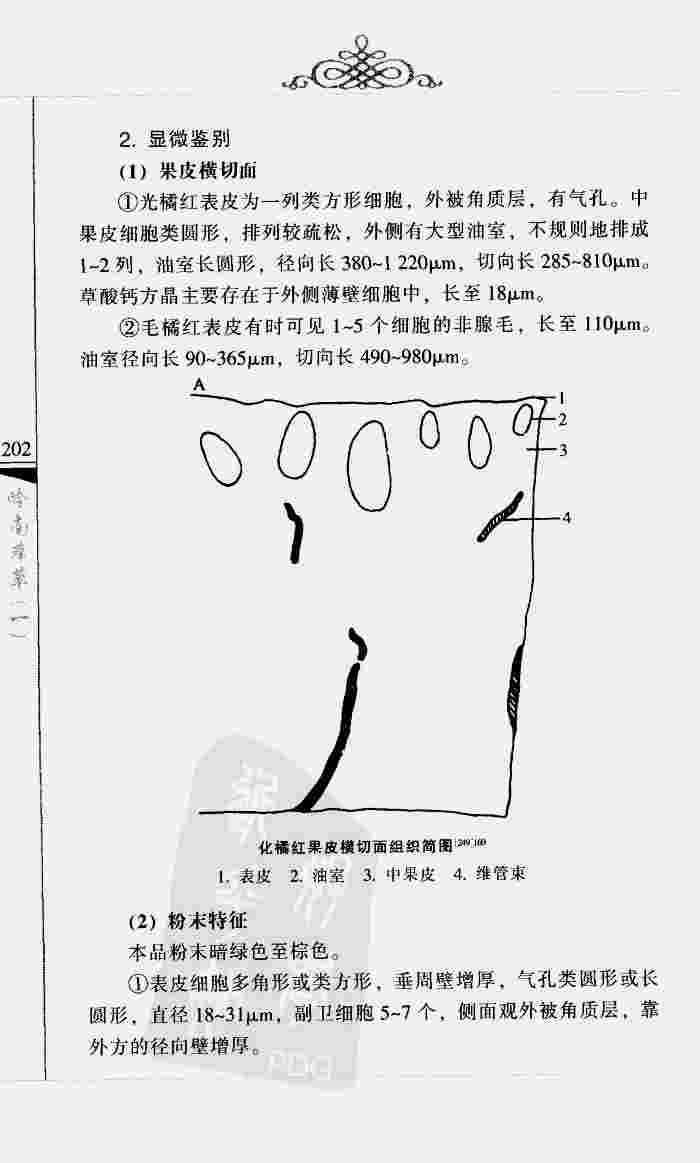 2. 显微鉴别
(1) 果皮横切面
①光橘红表皮为一列类方形细胞，外被角质层，有气孔。中
果皮细胞类圆形，排列较疏松，外侧有大型油室，不规则地排成
1~2 列，油室长圆形，径向长 380~1 220μm，切向长 285~810μm。
草酸钙方晶主要存在于外侧薄壁细胞中，长至 18μm。
②毛橘红表皮有时可见 1~5 个细胞的非腺毛，长至 110μm。
油室径向长 90~365μm，切向长 490~980μm。
A
1
2
202
3
4
岭南本草（一）
化橘红果皮横切面组织简图
1. 表皮 2. 油室 3. 中果皮 4. 维管束
(2) 粉末特征
本品粉末暗绿色至棕色。
①表皮细胞多角形或类方形，垂周壁增厚，气孔类圆形或长
圆形，直径 18~31μm，副卫细胞 5~7 个，侧面观外被角质层，靠
外方的径向壁增厚。
PDG